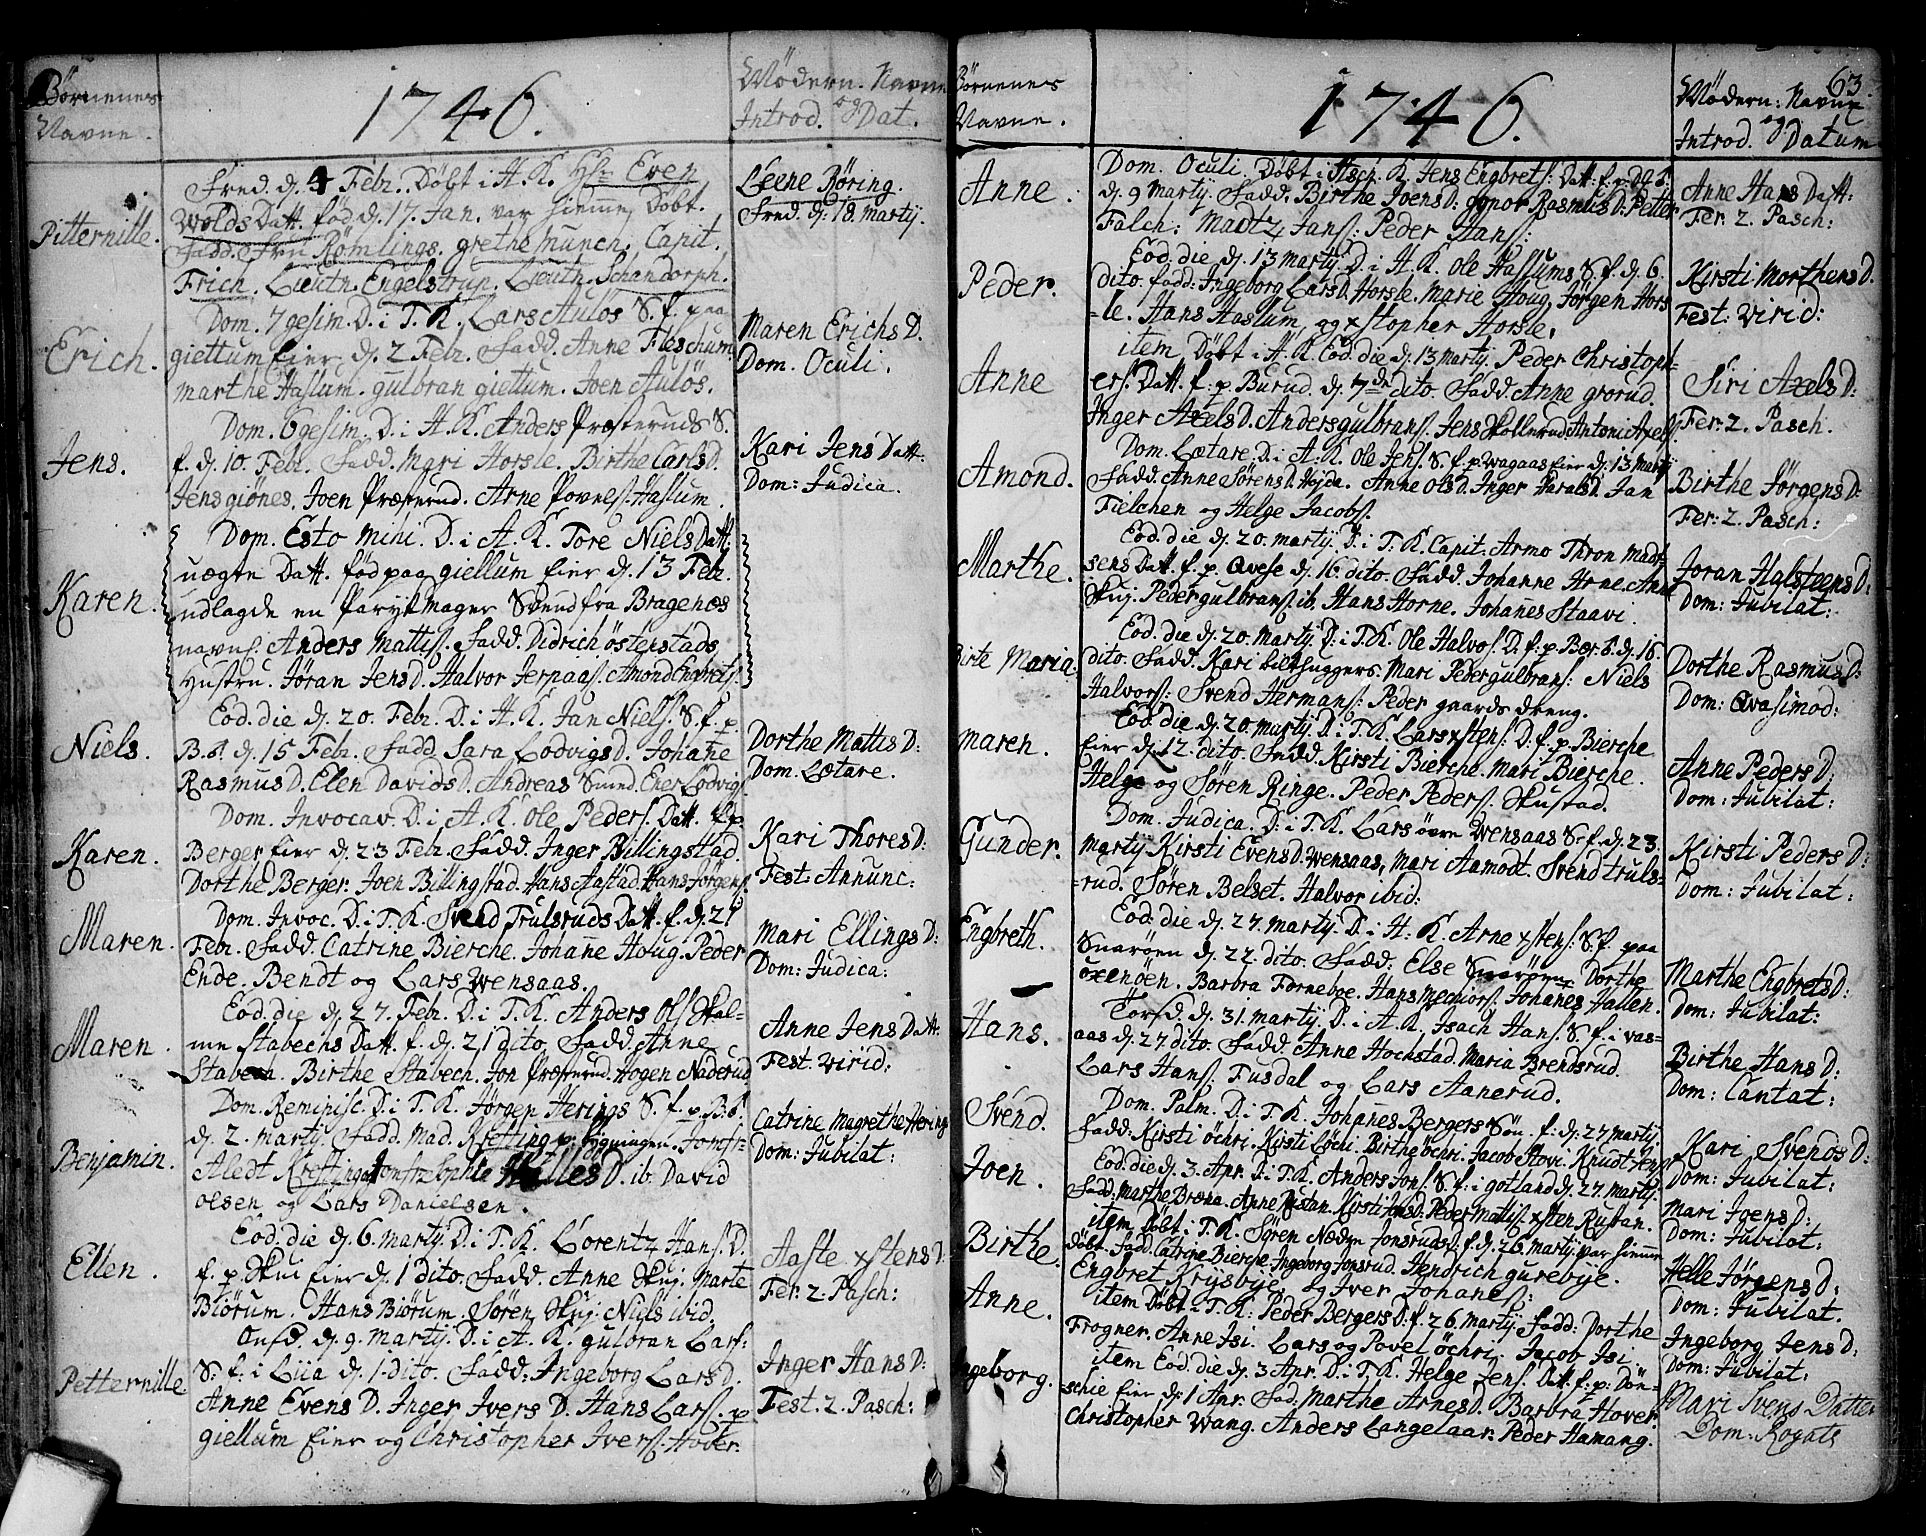 Börnenes
Navne.
1746.
Mödern. Navne
Introd. og Dat.
Pitternille.
Fred. d. 4 Febr. Döbt i H. K. Hr. Even
Wolds Datt. föd d. 17. Jan. var hiemme Döbt.
Fadd. Fru Römlings. grethe Munch. Capit.
Frich. Lieutn. Engelstrup. Lieutn. Schandorph.
Leene Röring.
Fred. d. 18 martij.
Erich.
Dom. 7gesim. D. i T. K. Lars Aulös S. f. paa
giettum Eier d. 2 Febr. Fadd. Anne Fleschum
marthe Haslum. gulbran giettum. Joen Aulös.
Maren Erichs D.
Dom. Oculi.
Jens.
Dom. 6gesim. D. i H. K. Anders Præsteruds S.
f. d. 10. Febr. Fadd. Mari Horsle. Birthe Carls D.
Jens giönes. Joen Præsterud. Arne Povels. Haslum.
Kari Jens Datt.
Dom: Judica.
Karen.
Dom. Esto mihi. D. i H. K. Tore Niels Datt.
uægte Datt. föd paa giellum Eier d. 13 Febr.
udlagde en Parykmager Svend fra Bragenæs
navnl. Anders Mattis. Fadd. Didrich Östenstads
Hustru. Jöran Jens D. Halvor Jernaas. Amond Engbrets.
Niels.
Eod. die d. 20. Febr. D. i H. K. Jan Niels. S. f. p.
B. d. 15 Febr. Fadd. Sara Lodvigs D. Johane
Rasmus D. Elen Davids D. Andreas Smed. Ener Lodvigs.
Dorthe Mattis D:
Dom. Lætare.
Karen.
Dom. Invocav. D. i H. K. Ole Peders. Datt. f. p.
Berger Eier d. 23 Febr. Fadd. Inger Billingstad.
Dorthe Berger. Joen Billingstad. Hans Jastad. Hans Jörgens.
Kari Thores D:
Fest: Annunc:
Maren.
Dom. Invoc. D. i T. K. Svend Trulsruds Datt. f. d. 21
Febr. Fadd. Catrine Bierche. Johane Houg. Peder
Ende. Bendt og Lars Wensaas.
Mari Ellings D:
Dom: Judica:
Maren.
Eod. die d. 27. Febr. D. i T. K. Anders Ols. Skal-
me Stabechs Datt. f. d. 21 dito. Fadd. Anne
Stabech. Birthe Stabech. Jon Præsterud. Hogen Naderud
Anne Jens Datt.
Fest. virid:
Benjamin.
Dom. Reminisc. D. i T. K. Jörgen Herings S. f. p. B.
d. 2. martij. Fadd. Mad. Krefting p. bygningen. Jomfr.
Aledt Krefting. Jomfr. Sophia Hilles D. ib. David
olsen og Lars Danielsen.
Catrine Magrethe Hering
Dom: Jubilat:
Ellen.
Eod. die d. 6. martij. D. i T. K. Lorentz Hans. D.
f. p. Skui Eier d. 1 dito. Fadd. Anne Skuj. Marte
Biörum. Hans Biörum. Sören Skuj. Niels ibid.
Aaste xstens D:
Fer: 2. Pasch:
Petternille
Onsd. d. 9. Martij. D. i H. K. gulbran Lars:
S. f. i Liia d. 1. dito. Fadd: Ingeborg Lars D.
Anne Evens D. Inger Ivers D. Hans Lars. p.
giellum Eier og Christopher Ivers. Hover.
Inger Hans D:
Fest. 2. Pasch:
Börnenes
Navne.
1746.
63.
Mödern: Navne
Introd. og Datum
Anne.
Dom. Oculi. Döbt i H. K. Jens Engbrets. Datt. f. p.
d. 9 martij. Fadd. Birthe Joens D. Rasmus D. Petter
Falch: Madtz Jans: Peder Hans:
Anne Hans Datt:
Fer. 2. Pasch:
Peder.
Eod. die d. 13 martij. D. i H. K. Ole Haslums S. f. d. 6.
dito. fadd: Ingeborg Lars D. Horsle. Marie Houg. Jörgen Hors
-le. Hans Haslum, og xstopher Horsle.
Kirsti Morthens D.
Fest: virid:
Anne
item Döbt i H. K. Eod. die d. 13 martij. Peder Christoph-
ers. Datt. f. p. Burud. d. 7de dito. Fadd. Anne grorud.
Inger Axels D. Anders gulbrans. Jens Skollerud. Antoni Axels.
Siri Axels D:
Fer: 2. Pasch.
Amond.
Dom. Lætare. D. i H. K. Ole Jens. S. f. p. wagaas Eier d. 13 martij
Fadd. Anne Sörens D. Anne Ols D. Inger Harals D. Jan
Fielchen og Helge Jacobs.
Birthe Jörgens D:
Fer: 2. Pasch:
Marthe.
Eod. die d. 20. martij. D. i T. K. Capit. Armo Thron Mad-
sens Datt. f. p. Qvese d. 16. dito. Fadd. Johanne Horne. Anne
Skuj. Peder gulbrans. ib. Hans Horne. Johanes Staavi.
Joran Halsteens D:
Dom: Jubilat:
Birte Maria.
Eod. die d. 20. Martij. D. i T. K. Ole Halvors. D. f. p. Bær. d. 16.
dito. Fadd. Kari bilthuggers. Mari Peder gulbrans: Niels
Halvors: Svend Hermans: Peder gaards dreng.
Dorthe Rasmus D:
Dom: Qvasimod:
Maren.
Eod. die d. 20. martij. D. i T. K. Lars xstens. D. f. p. Bierche
Eier d. 12. dito. Fadd. Kirsti Bierche. Mari Bierche.
Helge og Sören Ringe. Peder Peders. Skustad.
Anne Peders D:
Dom: Jubilat:
Gunder.
Dom. Judica. D. i T. K. Lars övre Wensaas S. f. d. 23.
martij. Kirsti Evens D. Wensaas, Mari Aamodt. Svend truls-
-rud. Sören Belset. Halvor ibid:
Kirsti Peders D:
Dom: Jubilat:
Engbreth.
Eod: die d. 27. martij. D. i H. K. Arne xstens. S. f. paa
Snaröen d. 22. dito. Fadd: Else Snaröen. Dorthe
oxenöen. Barbra Forneboe. Hans Mechiors. Johanes Hallen.
Marthe Engbrets D:
Dom: Jubilat:
Hans.
Torsd. d. 31. martij. D. i H. K. Isach Hans. S. f. i vas-
aas d. 27 dito. Fadd. Anne Hochstad. Maria Brendsrud.
Lars Hans. Fusdal og Lars Aanerud.
Birthe Hans D:
Dom: Cantat:
Svend.
Dom. Palm. D. i T. K. Johanes Bergers Sön f. d. 27 martij.
Fadd. Kirsti öchri. Kirsti Löchi. Birthe öchri. Jacob Stovi. Knudt Jens.
Kari Svends D:
Dom: Jubilat:
Joen.
Eod. die d. 3. Apr. D. i T. K. Anders Jons. S. f: i gotland d. 27. martij.
Fadd: Marthe Bræna. Anne Rustan. Kirsti Jans D. Peder Mattis. xsten Rustan.
Mari Joens D:
Dom: Jubilat:
Birthe.
item Döbt. i T. K. Sören Nædre Jonsruds D. f. d. 26. martij. var hiemme
döbt. Fadd. Catrine Bierche. Ingeborg Jonsrud. Hendrich gurebye.
Engbret Krysbye og Iver Johanes:
Helle Jörgens D:
Dom: Jubilat.
Anne.
item Döbt i T. K. Peder Bergers D. f. 26. martij. Fadd: Dorthe
Frogner. Anne Isi. Lars og Povel öchri. Jacob Isi.
Ingeborg Jens D:
Dom: Jubilat:
Ingeborg.
item Eod. die d. 3 Apr. D. i T. K. Helge Jens. Datt. f. p: Dön-
schie Eier d. 1 Apr. Fad. Marthe Arnes D. Barbra Hover
Christopher Wang. Anders Langelaar. Peder Hamang.
Mari Svens Datter
Dom: Rogate